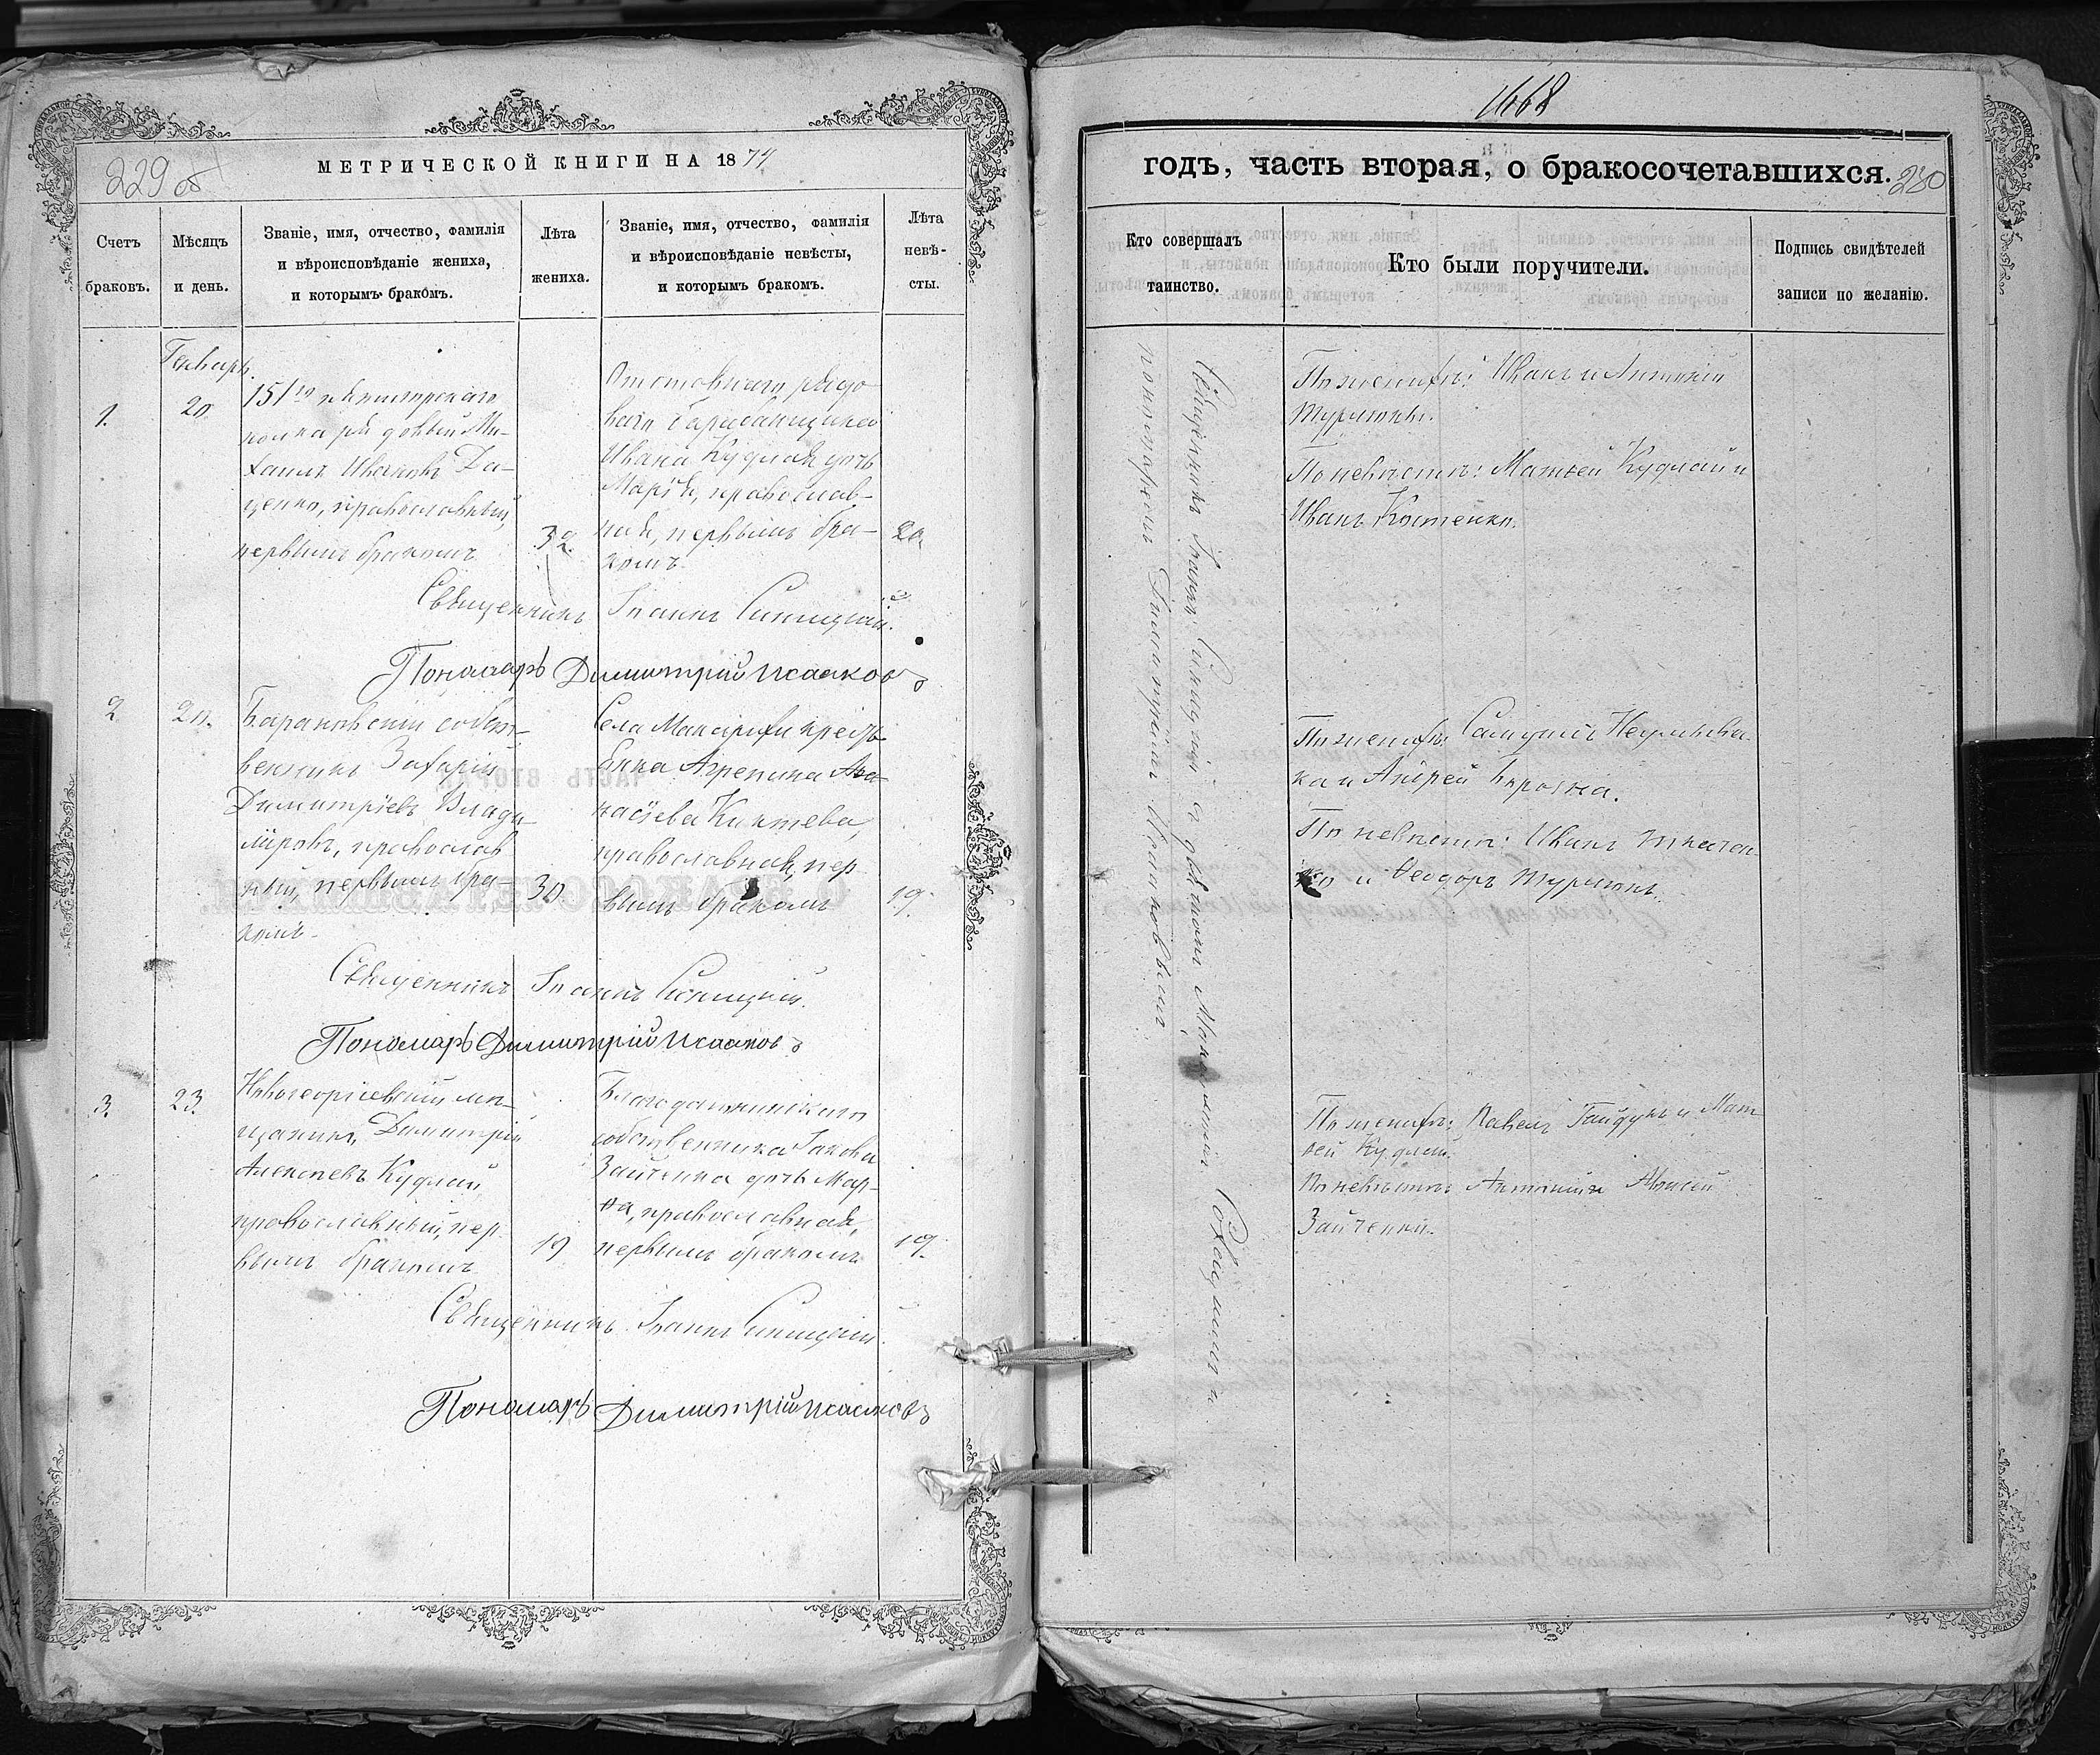 229 об
МЕТРИЧЕСКОЙ КНИГИ НА 1874
Счетъ браковъ.
Мѣсяцъ и день.
Званіе, имя, отчество, фамилія
и вѣроисповѣданіе жениха,
и которымъ бракомъ.
Лѣта
жениха.
Званіе, имя, отчество, фамилія
и вѣроисповѣданіе невѣсты,
и которымъ бракомъ.
Лѣта
невѣ-
сты.
Январь.
1.
20
151го
полка рядовый Ми-
хаилъ Ивановъ Да-
ценко, православный,
первымъ бракомъ
32.
Отставнаго рядо
ваго барабанщика
Ивана Кудлая дочь
Марія, православ-
ная, первымъ бра-
комъ.
20
Священникъ Іоаннъ Синицкій.
Пономарь Димитрій Исааковъ
2
20.
Барановскій собст-
венникъ Захарій
Димитріевъ Влади
міровъ, православ
ный, первымъ бра
комъ.
30
Села крестъ
янка Агрепина Аѳа
насіева
православная, пер
вымъ бракомъ
19.
Священникъ Іоаннъ Синицкій.
Пономарь Димитрій Исааковъ
3.
23.
Новогеоргіевскій мѣ-
щанинъ Димитрій
Алексѣевъ Кудлай
православный, пер
вымъ бракомъ
19
Благодатнинскаго
собственника Іакова
Зайченка дочь Мар-
ѳа, православная,
первымъ бракомъ
19.
Священникъ Іоаннъ Синицкій.
Пономарь Димитрій Исааковъ
1668
годъ, часть вторая, о бракосочетавшихся.
230
Кто совершалъ
таинство.
Кто были поручители.
Подпись свидѣтелей
записи по желанію.
Священникъ Іоаннъ Синицкій съ дьякомъ
пономаремъ Димитріемъ Исааковымъ
По женихѣ: Иванъ и Антоній
Турлюны.
По невѣстѣ: Матвей Кудлай и
Иванъ Костенко.
По женихѣ: Самуилъ
ка и Андрей
По невѣстѣ: Иванъ Ткачен
ко и Ѳеодоръ Турлюнъ.
По женихѣ: Павелъ Гайдукъ и Мат
вей Кудлай.
По невѣстѣ: Антоній и
Зайченки.